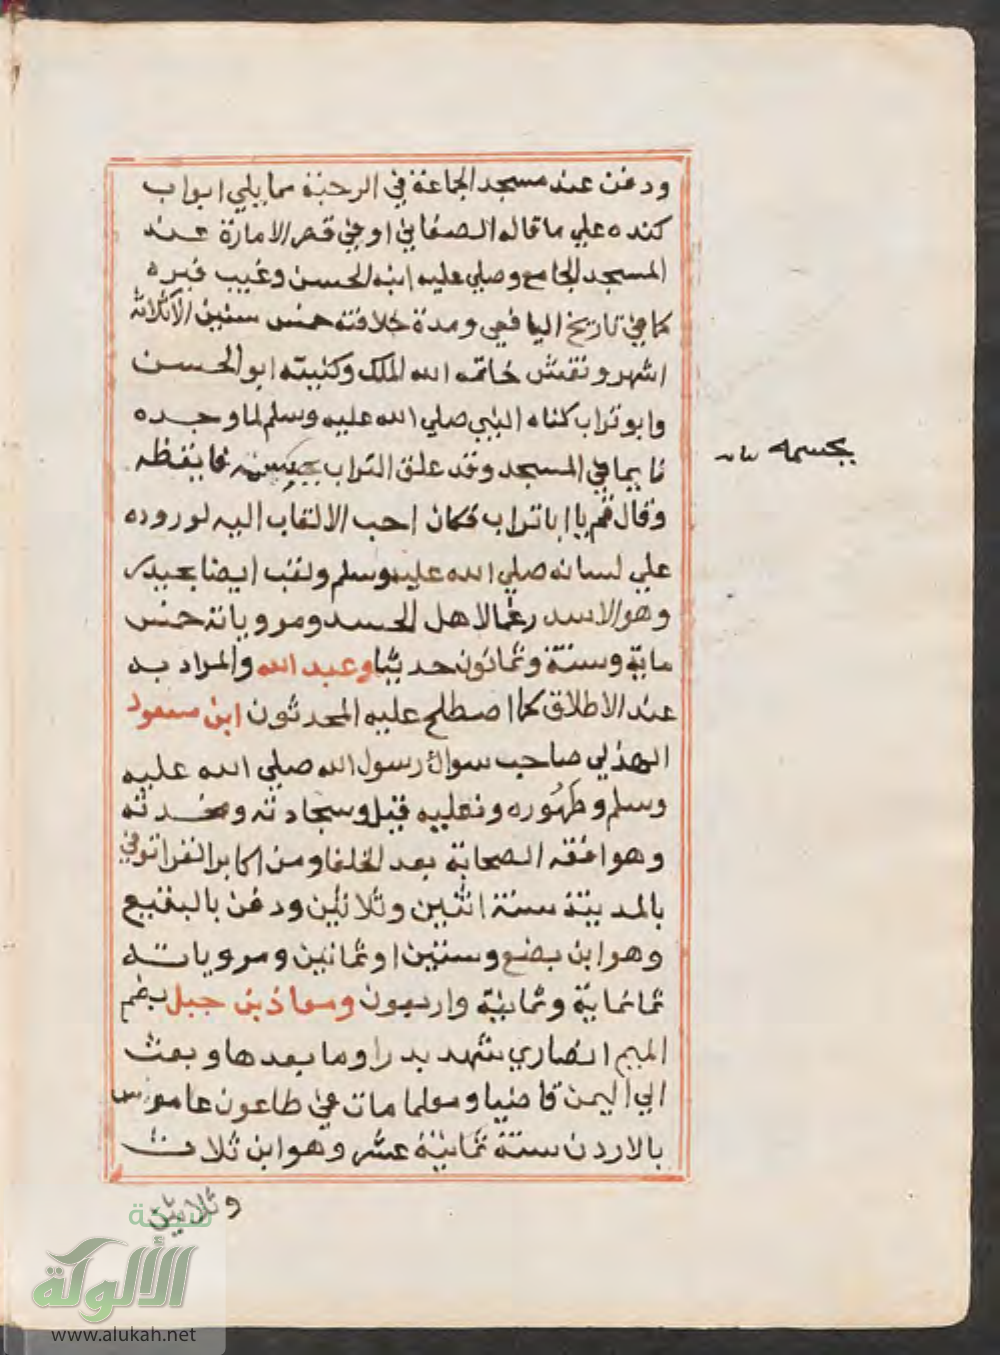 ودفن عند مسجد الجماعة في الرحبة مما يلي ابواب
كنده علي ما قاله الصغاني او في قصر الامارة عند
المسجد الجامع وصلي عليه ابنه الحسن وغيب قبره
كما في تاريخ اليافعي ومدة خلافته خمس سنين الا ثلاثة
اشهر ونقش خاتمه الله الملك وكنيته ابو الحسن
وابو تراب كناه النبي صلي الله عليه وسلم لما وجده
نايما في المسجد وقد علق التراب فايقظه
وقال قم يا ابا تراب فكان احب الالقاب اليه لوروده
علي لسانه صلي الله عليه وسلم ولقب ايضا بحيدر
وهو الاسد رغما لاهل الحسد ومروياته خمس
ماية وستة وثمانون حديثا وعبد الله والمراد به
عند الاطلاق كما اصطلح عليه المحدثون ابن مسعود
الهذلي صاحب سواك رسول الله صلي الله عليه
وسلم وطهوره ونعليه قيل وسجادته ومخدته
وهو افقه الصحابة بعد الخلفا ومن اكابر القرا توفي
بالمدينة سنة اثنين وثلاثين ودفن بالبقيع
وهو ابن بضع وستين او ثمانين ومروياته
ثمانماية وثمانية واربعون ومعاذ بن جبل بضم
الميم انصاري شهد بدرا وما بعدها وبعث
الي اليمن قاضيا ومعلما مات في طاعون عامواس
بالاردن سنة ثمانية عشر وهو ابن ثلاث
وثلاثين
بجسمه
شبكة
الألوكة
www.alukah.net